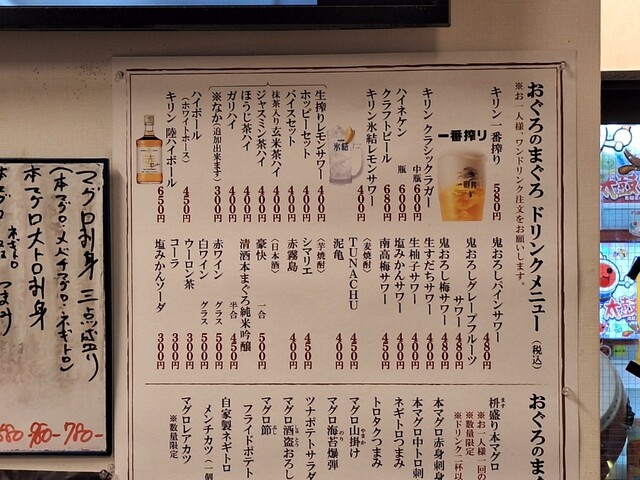 おぐろのまぐろ ドリンクメニュー (税込)
※お一人様、ワンドリンク注文をお願いします。
キリン 一番搾り 580円
一番搾り
キリン クラシックラガー 中瓶 600円
ハイネケン 瓶 600円
クラフトビール 680円
キリン氷結レモンサワー 400円
氷結
生搾りレモンサワー 400円
ホッピーセット 400円
バイスセット 400円
抹茶入り玄米茶ハイ 400円
ジャスミン茶ハイ 400円
ほうじ茶ハイ 400円
ガリハイ 400円
※なか(追加出来ます) 300円
ハイボール
(ホワイトホース) 450円
キリン 陸ハイボール 650円
鬼おろしパインサワー 480円
鬼おろしグレープフルーツ
サワー 480円
鬼おろし梅サワー 480円
生すだちサワー 480円
生柚子サワー 480円
塩みかんサワー 480円
南高梅サワー 450円
(麦焼酎)
TUNACHU 450円
泥亀 400円
(芋焼酎)
シマリエ 450円
赤霧島 450円
(日本酒)
豪快 一合 500円
清酒本まぐろ純米吟醸 半合 450円
赤ワイン グラス 500円
白ワイン グラス 500円
ウーロン茶 300円
コーラ 300円
塩みかんソーダ 300円
おぐろのま
枡盛り本マグロ
※お一人様一回の
※数量限定
※ドリンク二杯以
本マグロ赤身刺身
本マグロ中トロ刺
ネギトロつまみ
トロタクつまみ
マグロ山掛け
マグロ海苔爆弾
ツナポテトサラダ
マグロ酒盗おろし
マグロ節
フライドポテト
自家製ネギトロ
メンチカツ(一個
マグロレアカツ
※数量限定
マグロお刺身 三点盛り
(本マグロ・メバチマグロ・ネギトロ)
本マグロ大トロお刺身
ネギトロ
780-
980-